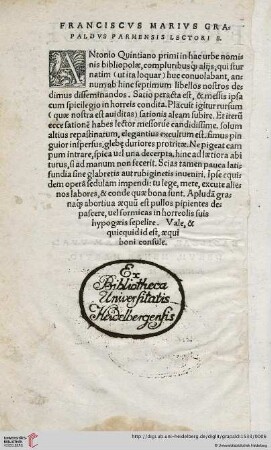 FRANCISCVS MARIVS GRA-
PALDVS PARMENSIS LECTORI S.
ANtonio Quintiano primi in hac urbe nomi
nis bibliopolæ, compluribusq́ alijs, qui stur
natim (ut ita loquar) huc conuolabant, an-
num ab hinc septimum libellos nostros de-
dimus disseminandos. Satio peracta est, & messis ipsa
cum spicilegio in horreis condita. Placuit igitur rursum
(quæ nostra est auiditas) sationis aleam subire. Et iterū
ecce satione habes lector messorie candidissime. solum
altius repastinatum, elegantius excultum est. fimus pin
guior inspersus, glebę duriores protritæ. Ne pigeat cam
pum intrare, spica uel una decerpta, hinc ad lætiora abi
turus, si ad manum non fecerit. Scias tamen pauca lati-
fundia sine glabretis aut rubiginetis inueniri. Ipse equi-
dem opera sedulam impendi: tu lege, mete, excute alie-
nos labores, & conde quæ bona sunt. Apludā gra-
naq́; abortiua æquū est pullos pipientes de-
pascere, uel formicas in horreolis suis
hypogæis sepelire. Vale, &
quicquid id est, æqui
boni consule.
Ex
Bibliotheca
Universitatis
Heidelbergensis
UNIVERSITÄTS-
BIBLIOTHEK
HEIDELBERG
http://digi.ub.uni-heidelberg.de/diglit/grapaldi1533/0006
© Universitätsbibliothek Heidelberg